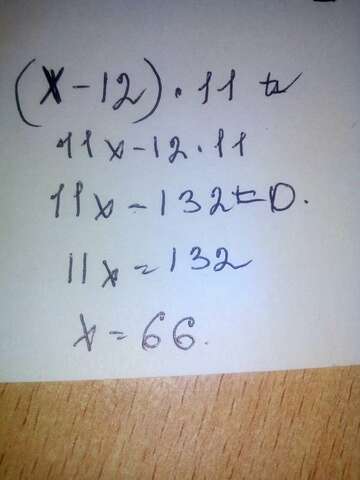 (x-12)·11=
11x-12·11
11x-132=0.
11x=132
x=66.